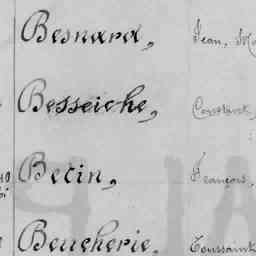 Besnard, Jean, Ma
Besseiche, Constant,
Betin, François,
Beucherie, Toussaint